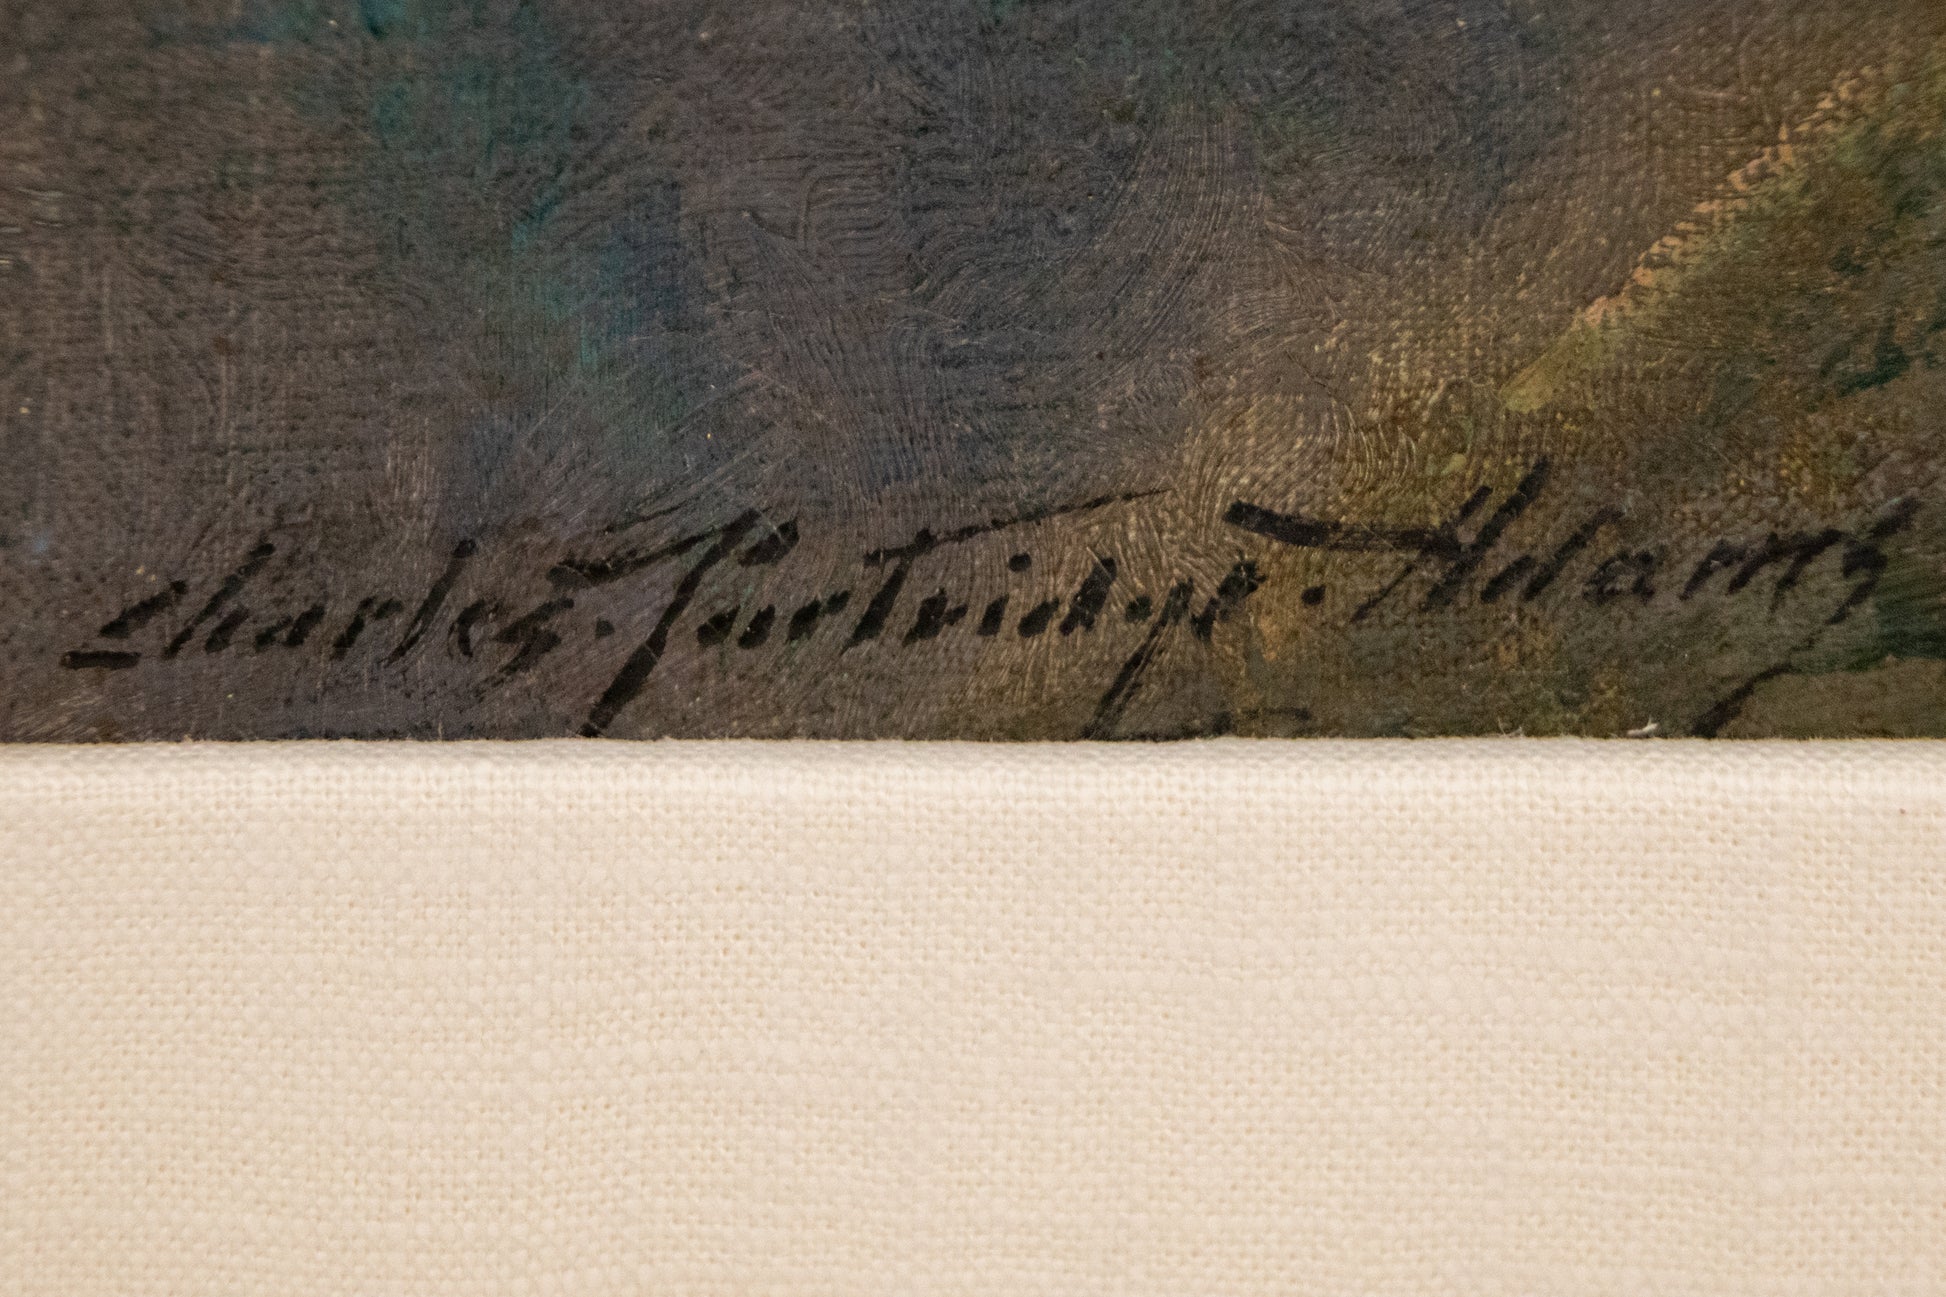 Charles · Partridge · Adams